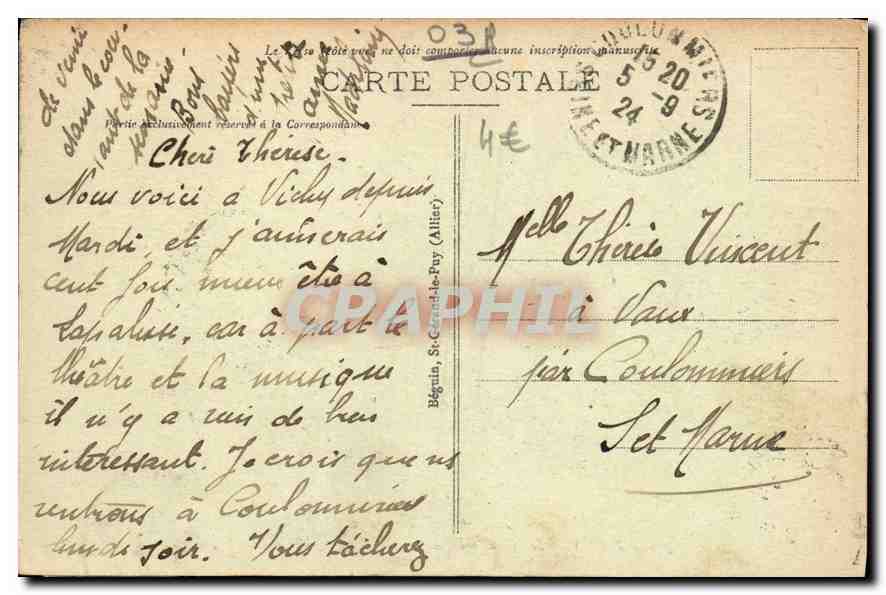 Le ... côté vue, ne doit comporter aucune inscription manuscrite
03P
CARTE POSTALE
Partie exclusivement réservée à la Correspondance
4€
COULOMMIERS
15 20
5 -9
24
SEINE ET MARNE
Cheri Thérèse.
Nous voici à Vichy depuis
Mardi, et j'aimerais
cent fois mieux être à
Lapalisse, car à part le
théâtre et la musique
il n'y a rien de bien
intéressant. Je crois que ns
rentrons à Coulommiers
lundi soir. Vous tâcherez
de venir
dans le cou-
rant de la
semaine.
Bons
baisers
d'une
petite
amie
Béguin, St-Gérand-le-Puy (Allier)
Melle Thérèse Vincent
à Vaux
par Coulommiers
S et Marne
CPAPHIL